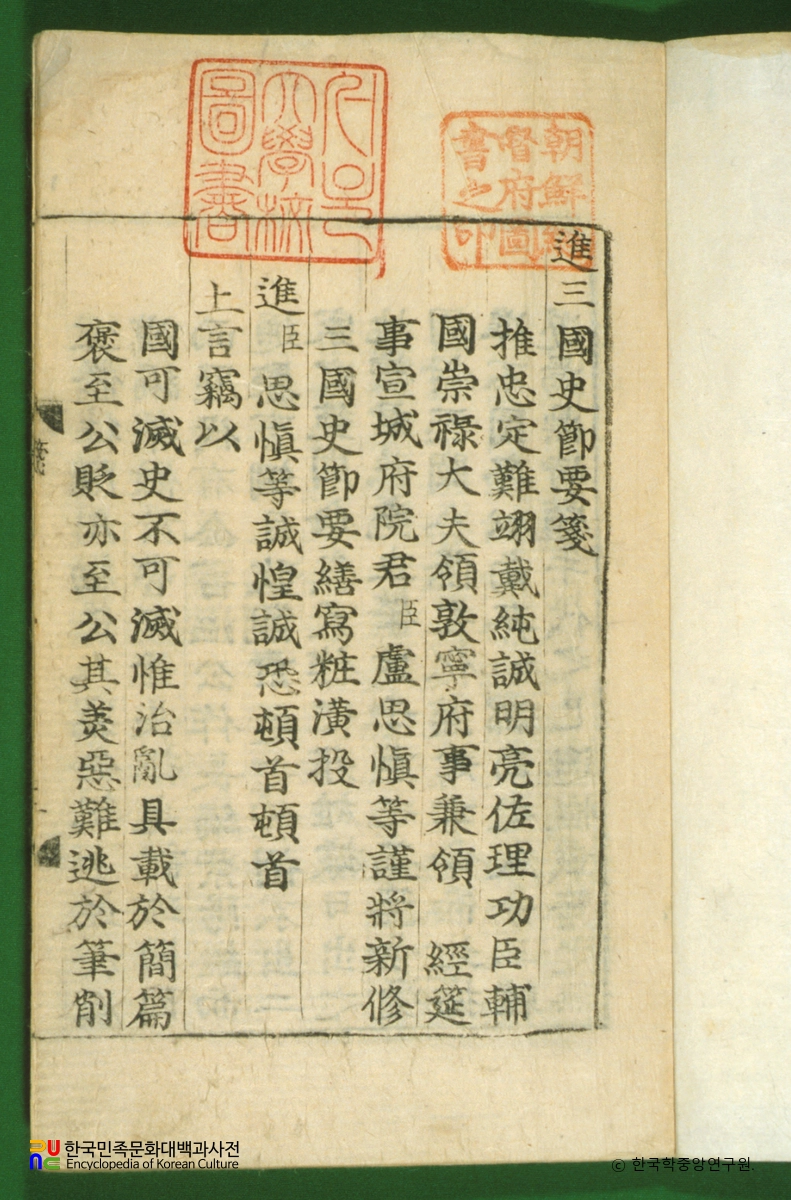 進三國史節要箋
推忠定難翊戴純誠明亮佐理功臣輔
國崇祿大夫領敦寧府事兼領 經筵
事宣城府院君臣盧思愼等謹將新修
三國史節要繕寫粧潢投
進臣思愼等誠惶誠恐頓首頓首
上言竊以
國可滅史不可滅惟治亂具載於簡篇
褒至公貶亦至公其美惡難逃於筆削
朝鮮總
督府圖
書之印
大學校
圖書
한국민족문화대백과사전
Encyclopedia of Korean Culture
© 한국학중앙연구원.